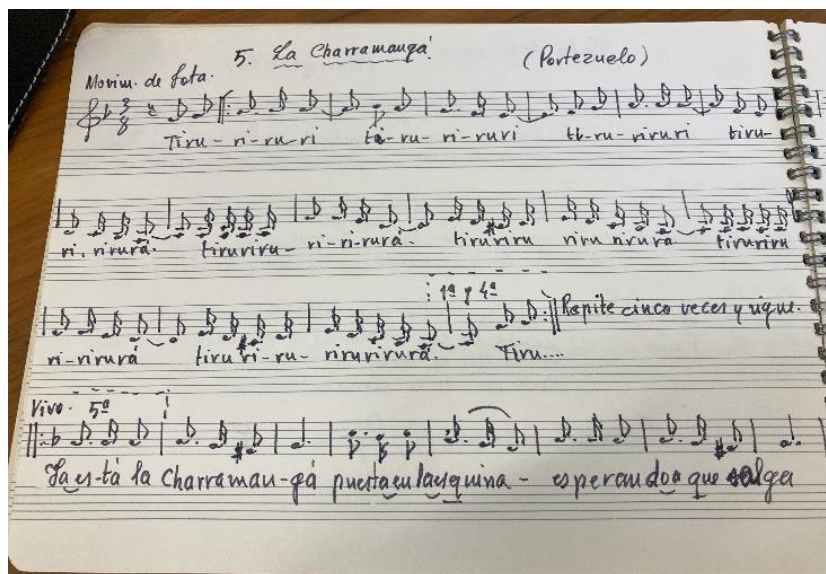 5. La Charramangá (Portezuelo)
Movim. de Jota.
3
8
Tiru-ri-ru-ri ti-ru-ri-ruri ti-ru-riruri tiru-
ri-rirurá. tiruriru-ri-ri-rurá. tiruriru riru rirurá tiruriru
1ª y 4ª
Repite cinco veces y sigue.
ri-rirurá tiru ri-ru-rirurirurá. Tiru....
Vivo. 5ª
Ya es-tá la Charraman-gá puesta en la esquina - esperando a que salga